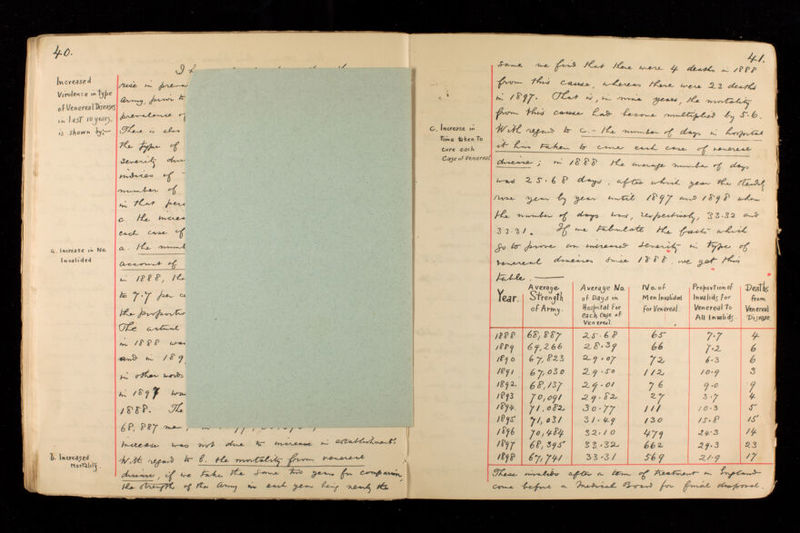 40.
Increased
Virulence in Type
of Venereal Diseases
in last 10 years,
is shown by:-
rise in
army, prior to
prevalence of
There is also
the type of
severity
indices of
number of
in that
c. the
each case of
a. Increase in No.
Invalided
a. the
account of
in 1888, the
to 7.7 per
the
The actual
in 1888
and in 189
in other words
in 1897
1888. The
68,887 men
increase was not due to increase in establishment.
b. Increased
Mortality.
With regard to b. the mortality from venereal
disease, if we take the same two years for comparison,
the strength of the Army in each year being nearly the
41.
same we find that there were 4 deaths in 1888
from this cause, whereas there were 23 deaths
in 1897. That is, in nine years, the mortality
from this cause had become multiplied by 5.6.
c. Increase in
Time taken To
cure each
Case of Venereal
With regard to c. - the number of days in hospital
it has taken to cure each case of venereal
disease; in 1888 the average number of days
was 25.68 days, after which year this steadily
rose year by year until 1897 and 1898 when
the number of days was, respectively, 33.32 and
33.31. If we tabulate the facts which
go to prove an increased severity in type of
venereal diseases since 1888, we get this
table.
Year. Average Strength of Army. Average No. of Days in Hospital For each Case of Venereal. No. of Men Invalided for Venereal. Proportion of Invalids for Venereal To All Invalids. Deaths from Venereal Disease.
1888 68,887 25.68 65 7.7 4
1889 69,266 28.39 66 7.2 6
1890 67,823 29.07 72 6.3 6
1891 67,030 29.50 112 10.9 3
1892 68,137 29.01 76 9.0 9
1893 70,091 29.82 27 3.7 4
1894 71,082 30.77 111 10.3 5
1895 71,031 31.49 130 15.8 15
1896 70,484 32.10 479 24.3 14
1897 68,395 33.32 662 29.3 23
1898 67,741 33.31 569 21.9 17
These invalids after a term of treatment in England
come before a Medical Board for final disposal.